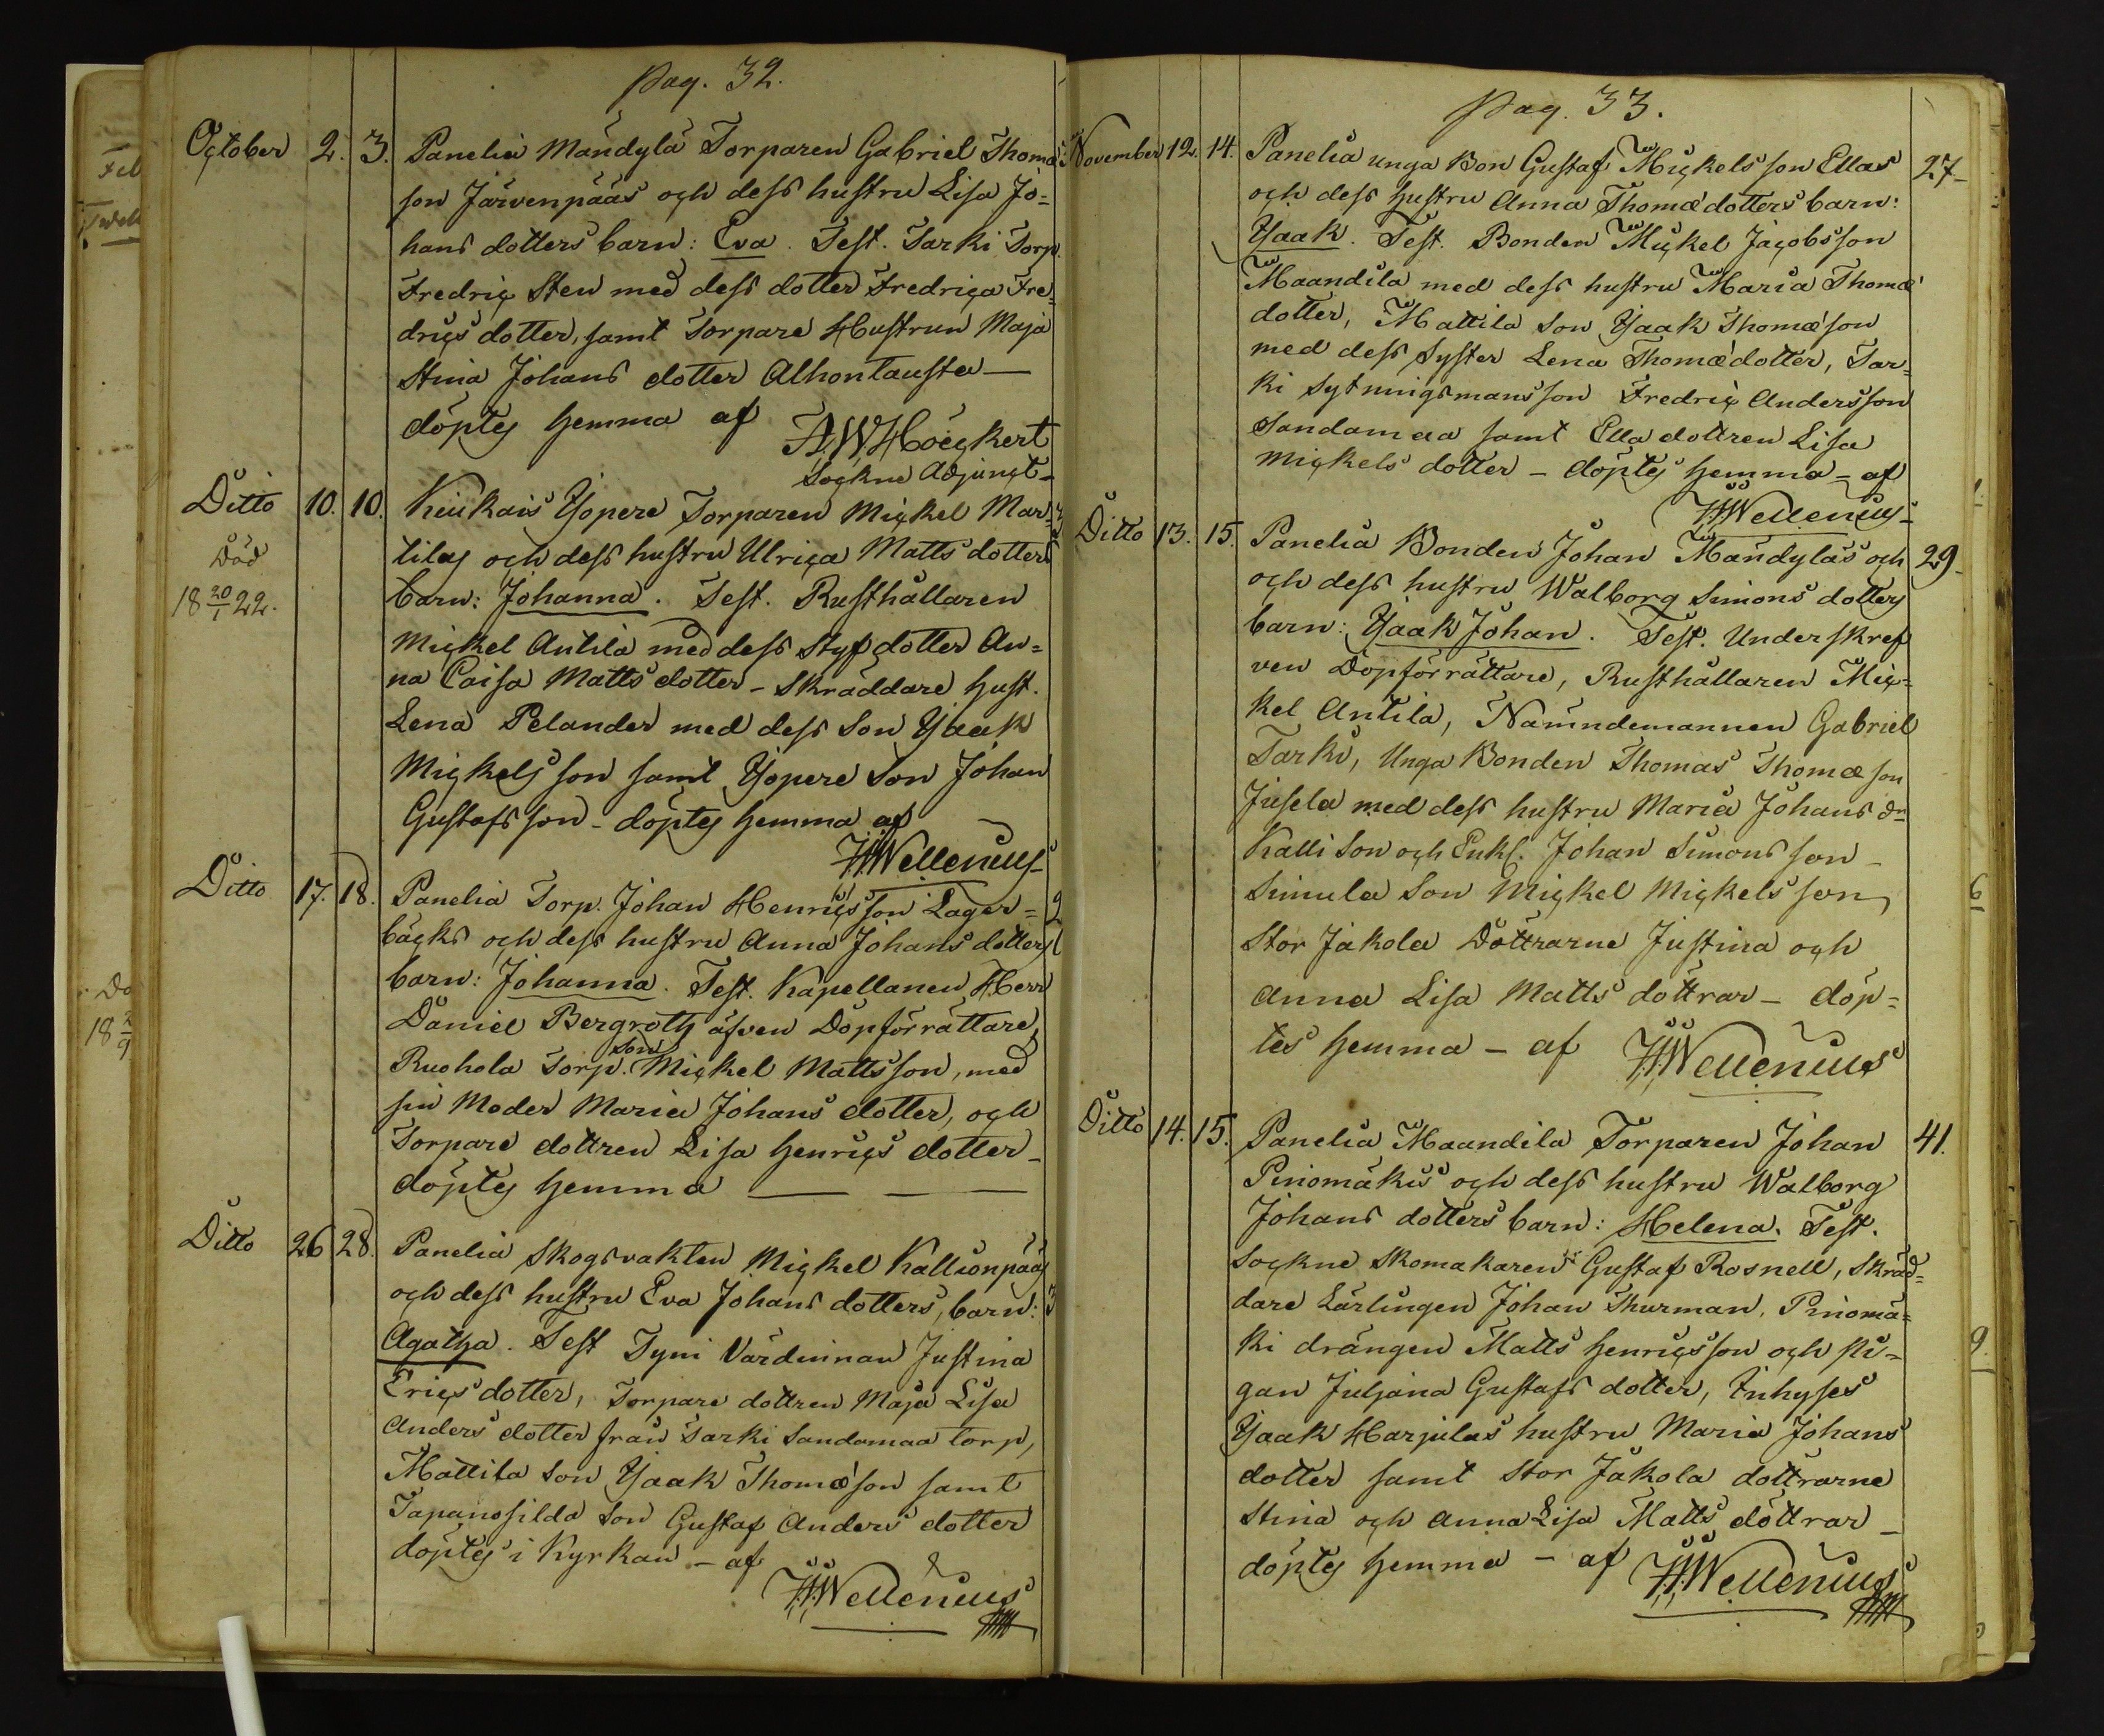 Pag. 32.
October 2. 3. Panelia Mändylä Torparen Gabriel Thomæ
son Järvenpääs och dess hustru Lisa Jo=
hans dotters barn: Eva. Test. Tarki Torp.
Fredric Sten med dess dotter Fredrica Fre=
drics dotter, samt Torpare Hustrun Maja
Stina Johans dotter Alhontausta —
döptes hemma af
A.W. Höckert
Sockne Adjunct-
Ditto 10. 10. Kiukais Yopere Torparen Mickel Mar=
tilas och dess hustru Ulrica Matts dotters
Död
18 20/1 22.
barn: Johanna. Test. Rusthållaren
Mickel Antila med dess Styfdotter An=
na Caisa Matts dotter - Skräddare hust.
Lena Pelander med dess Son Ysaak
Mickels son samt Yopere Son Johan
Gustafs son - döptes hemma af
HWellenius
Ditto 17. 18. Panelia Torp. Johan Henrics son Lager=
bäcks och dess hustru Anna Johans dotters
barn: Johanna. Test. Kapellanen Herr
Daniel Bergroth äfven Döpförrättare,
Ruohola Torp. son Mickel Matts son, med
sin Moder Maria Johans dotter, och
Torpare dottren Lisa Henrics dotter -
döptes hemma — —
Ditto 26 28. Panelia Skogsvakten Mickel Kallionpääs
och dess hustru Eva Johans dotters, barn:
Agatha. Test Tyni Värdinnan Justina
Erics dotter, Torpare dottren Maja Lisa
Anders dotter från Tarki Sandamaa torp,
Mattila Son Ysaak Thomæ son samt
Son Gustaf Anders dotter
döptes i Kyrkan - af
HWellenius
Pag. 33.
November 12. 14. Panelia unga Bon Gustaf Mickels son Ellas 27-
och dess hustru Anna Thomæ dotters barn:
Ysaak. Test. Bonden Mickel Jacobs son
Maandila med dess hustru Maria Thomæ
dotter, Mattila Son Ysaak Thomæ son
med dess Syster Lena Thomæ dotter, Tar=
ki Sytningsmans son Fredric Anders son
Sandamaa samt Ella dottren Lisa
Mickels dotter - döptes hemma - af
HWellenius-
Ditto 13. 15. Panelia Bonden Johan Mändyläs och 29-
och dess hustru Walborg Simons dotters
barn: Ysaak Johan. Test. Underskref
ven Döpförrättare, Rusthållaren Mic=
kel Antila, Nämndemannen Gabriel
Tarki, Unga Bonden Thomas Thomæ son
Jusela med dess hustru Maria Johans dr
Kalli Son och Enkl. Johan Simons son -
Simula Son Mickel Mickels son,
Stor Jakola Döttrarne Justina och
Anna Lisa Matts döttrar - döp=
tes hemma - af HWellenius
Ditto 14. 15. Panelia Maandila Torparen Johan 41.
Piiomäkis och dess hustru Walborg
Johans dotters barn: Helena. Test.
Sockne Skomakaren Gustaf Rosnell, Skräd=
dare Lärlingen Johan Thurman, Piiomä=
ki drängen Matts Henrics son och pi=
gan Juljana Gustafs dotter, Inhyses
Ysaak Harjulas hustru Maria Johans
dotter samt Stor Jakola döttrarne
Stina och Anna Lisa Matts döttrar -
döptes hemma - af HWellenius